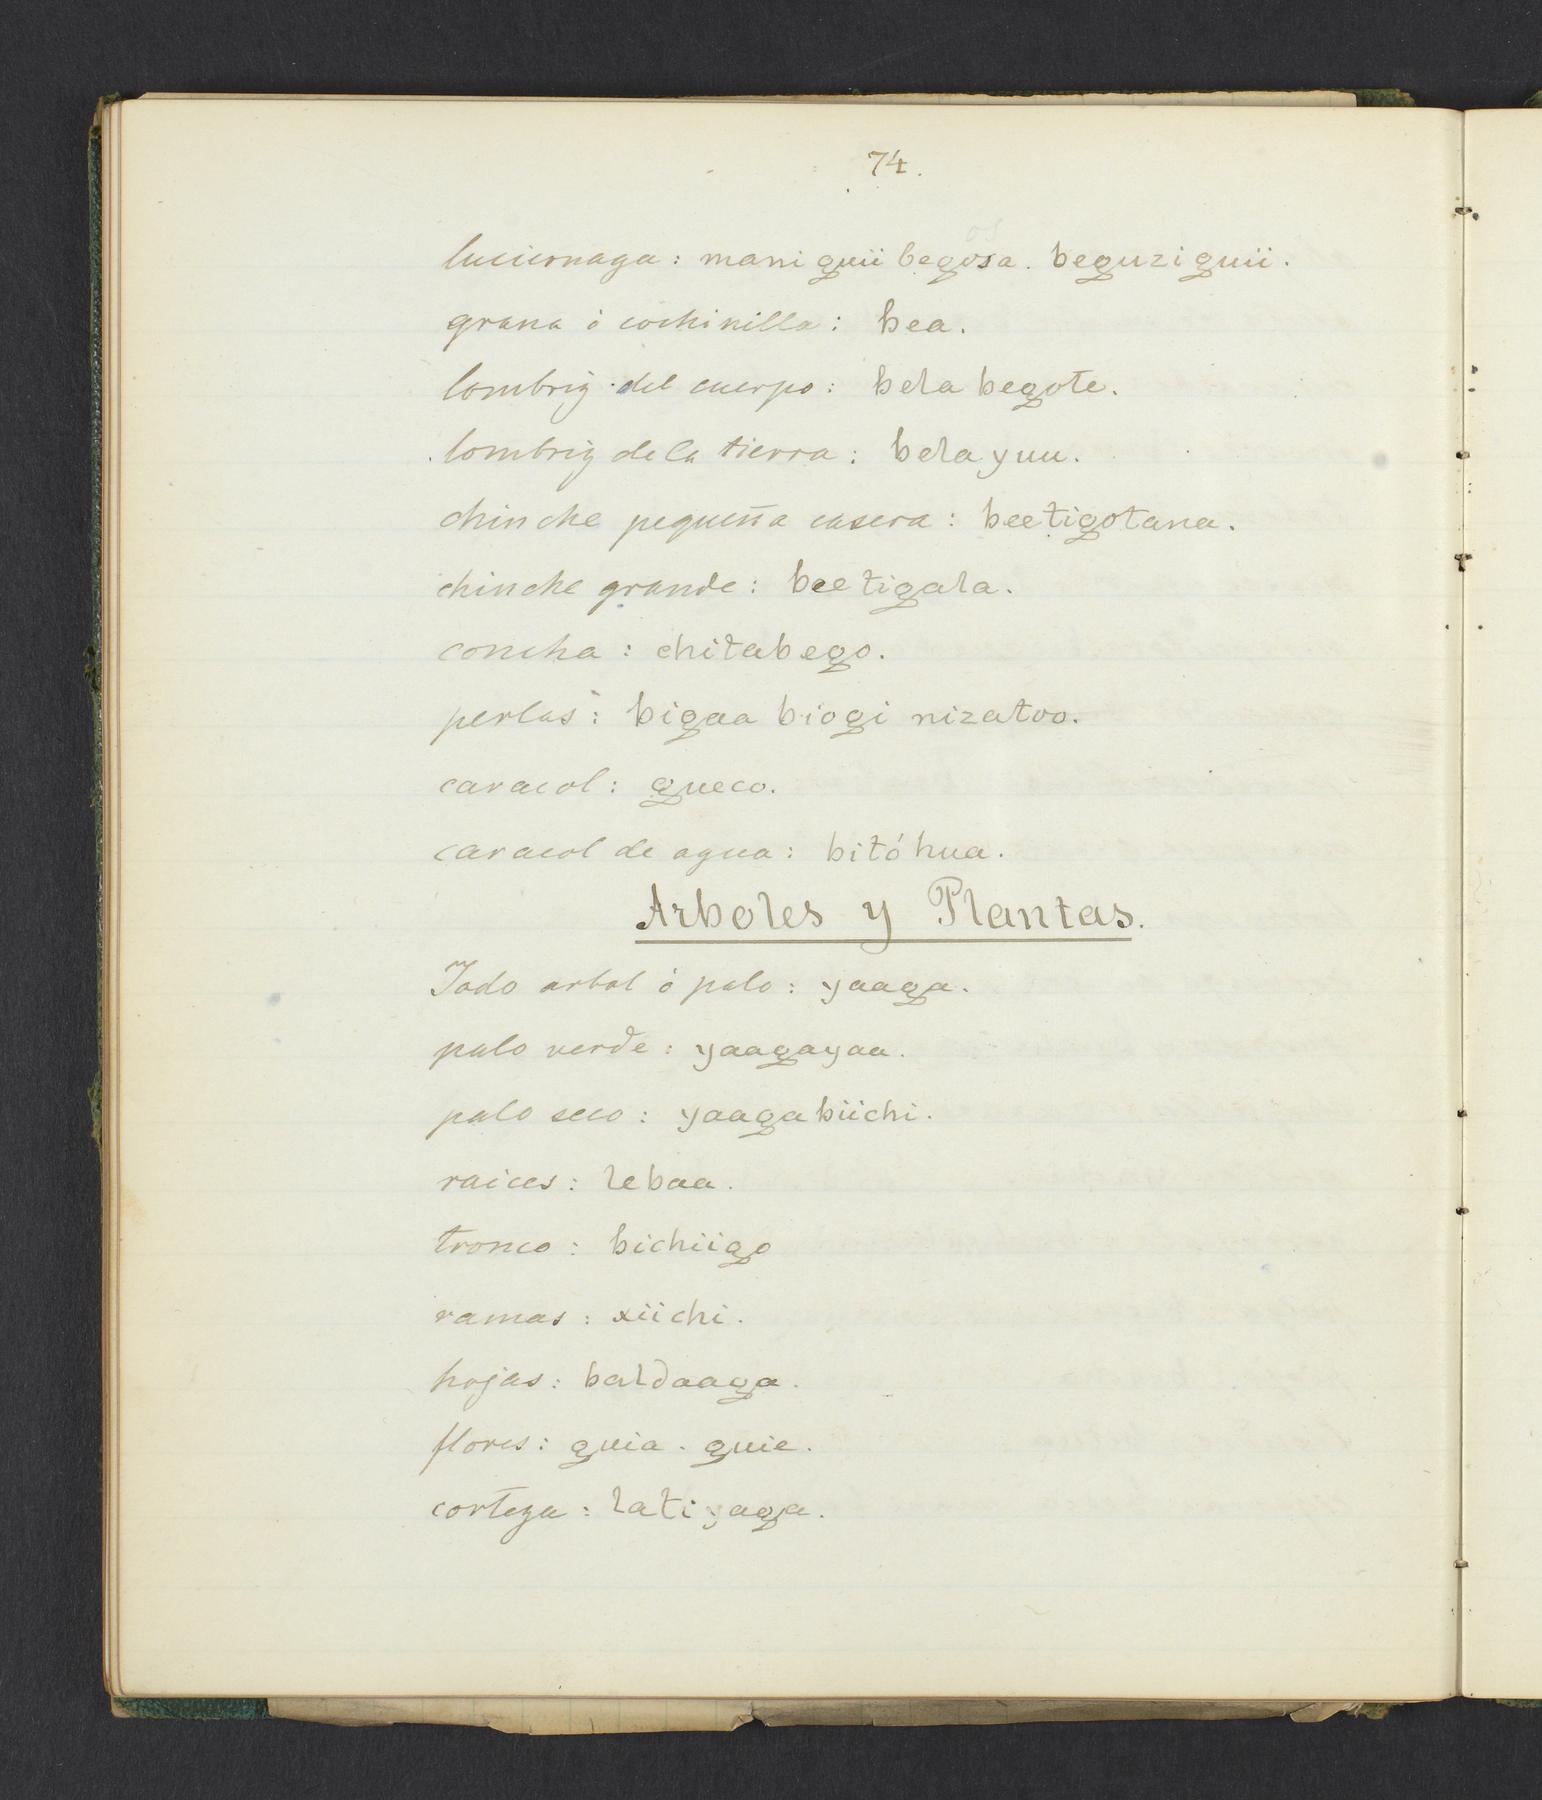 74.
luciernaga: mani guii begosa. beguzi guii.
grana ó cochinilla: bea.
lombriz del cuerpo: bela begote.
lombriz de la tierra: bela yuu.
chinche pequeña casera: beetigotana.
chinche grande: beetigala.
concha: chitabego.
perlas: bigaa biogi nizatoo.
caracol: gueco.
caracol de agua: bitóhua.
Arboles y Plantas.
Todo arbol ó palo: yaaga.
palo verde: yaagayaa.
palo seco: yaagabiichi.
raices: lebaa.
tronco: bichiigo
ramas: xiichi.
hojas: baldaaga.
flores: guia. guie.
corteza: lati yaga.